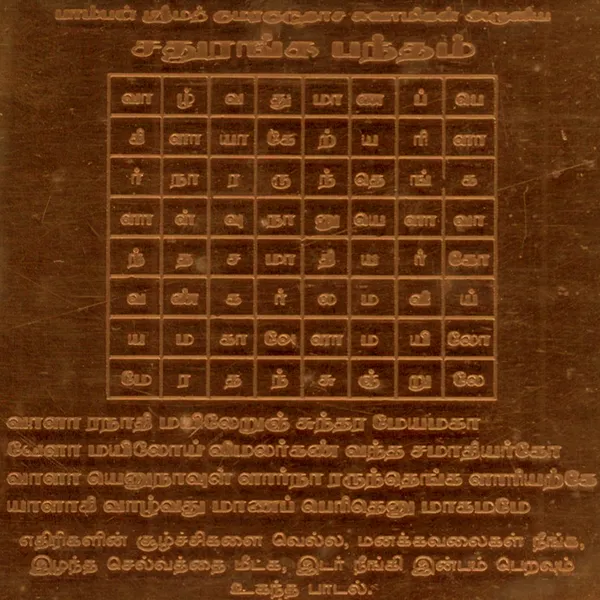 பாம்பன் ஸ்ரீமத் குமரகுருதாச சுவாமிகள் அருளிய
சதுரங்க பந்தம்
வா ழ் வ து மா ண ப் பெ
கி ளா யா கே ற் ய ரி ளா
ர் நா ர ரு ந் தெ ங் க
ளா ள் வு நா னு யெ ளா வா
ந் த ச மா தி ய ர் கோ
வ ண் க ர் ல ம வி ய்
ய ம கா வே ளா ம யி லோ
மே ர த ந் சு ஞ் று லே
வாளா ரநாதி மயிலேறுஞ் சுந்தர மேயமகா
வேளா மயிலோய் விமலர்கண் வந்த சமாதியர்கோ
வாளா யெனுநாவுள் ளார்நா ரருந்தெங்க ளாரியற்கே
யாளாகி வாழ்வது மாணப் பெரிதெனு மாகமமே
எதிரிகளின் சூழ்ச்சிகளை வெல்ல, மனக்கவலைகள் நீங்க,
இழந்த செல்வத்தை மீட்க, இடர் நீங்கி இன்பம் பெறவும்
உகந்த பாடல்.